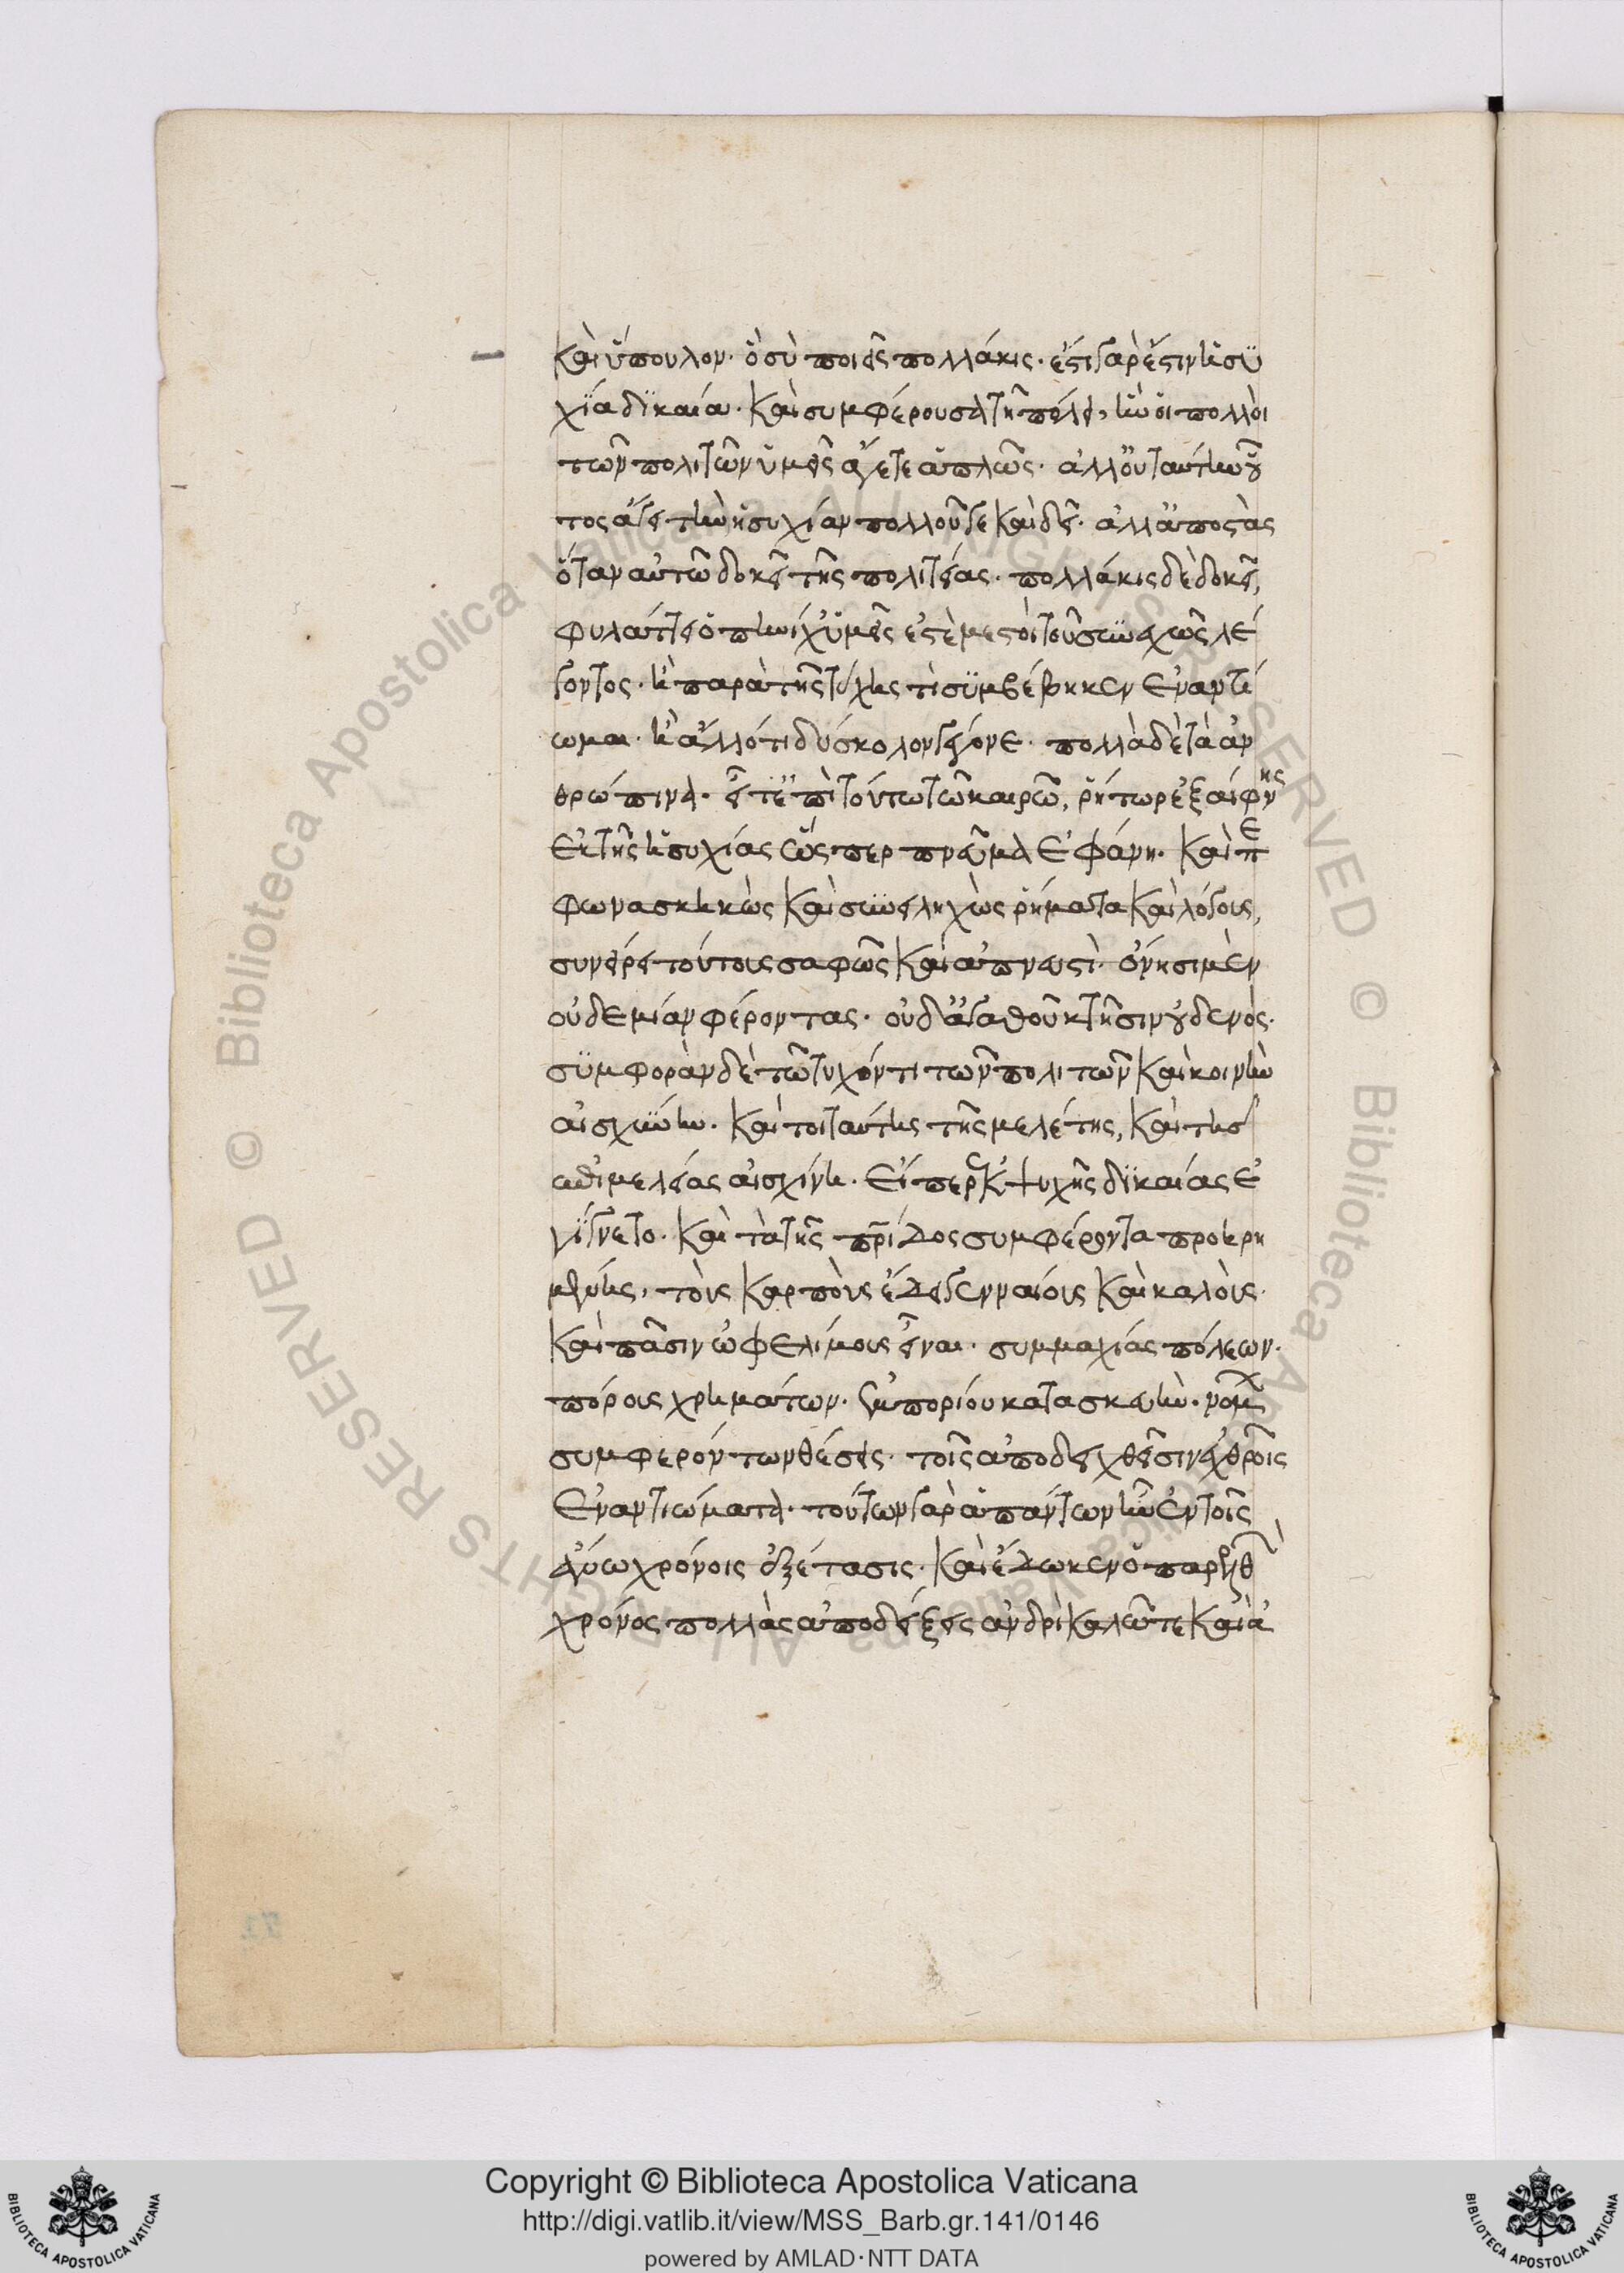 καὶ ὕπουλον· ὃ σὺ ποιεῖς πολλάκις· ἔστι γὰρ ἔστιν ἡσυ
χία δικαία· καὶ συμφέρουσα τῆ πόλει, ἣν οἱ πολλοὶ
τῶν πολιτῶν ὑμεῖς ἄγετε ἁπλῶς· ἀλλ' οὐ ταύτην οὗ
τος ἄγει τὴν ἡσυχίαν πολλοῦ γε καὶ δεῖ· ἀλλ' ἀποστὰς
ὅταν αὐτῶ δοκεῖ τῆς πολιτείας· πολλάκις δὲ δοκεῖ,
φυλάττει ὁπηνίχ' ὑμεῖς ἐστὲ μεστοὶ τοῦ συνεχῶς λέ
γοντος· ἢ παρὰ τῆς τύχης τὶ συμβέβηκεν ἐναντί
ωμα· ἢ ἄλλό τι δύσκολον γέγονε· πολλὰ δὲ τὰ ἀν
θρώπινα· εἶτ' ἐπὶ τούτω τῶ καιρῶ, ῥήτωρ ἐξαίφνης
ἐκ τῆς ἡσυχίας ὥσπερ πνεῦμα ἐφάνη· καὶ πε
φωνασκηκὼς καὶ συνειληχὼς ῥήματα καὶ λόγους,
συνείρει τούτους σαφῶς καὶ ἀπνευστὶ· ὄνησι μὲν
οὐδεμίαν φέροντας· οὐδ' ἀγαθοῦ κτῆσιν οὐδενὸς·
συμφορὰν δὲ τῶ τυχόντι τῶν πολιτῶν καὶ κοινὴν
αἰσχύνην· καίτοι ταύτης τῆς μελέτης, καὶ τῆς
ἐπιμελείας αἰσχίνη· εἴπερ ἐκ ψυχῆς δικαίας ἐ
γίγνετο· καὶ τὰ τῆς πρίδος συμφέροντα προηρη
μένης, τοὺς καρποὺς ἔδει γενναίους καὶ καλοὺς·
καὶ πᾶσιν ὠφελίμους εἶναι· συμμαχίας πόλεων·
πόρους χρημάτων· ἐμπορίου κατασκευὴν· νόμ
συμφερόντων θέσεις· τοῖς ἀποδειχθεῖσιν ἐχθροῖς
ἐναντιώματα· τούτων γὰρ ἁπάντων ἦν ἐν τοῖς
ἄνω χρόνοις ἐξέτασις· καὶ ἔδωκεν ὁ παρελθὼν
χρόνος πολλὰς ἀποδείξεις ἀνδρὶ καλῶ τε καὶ ἀ